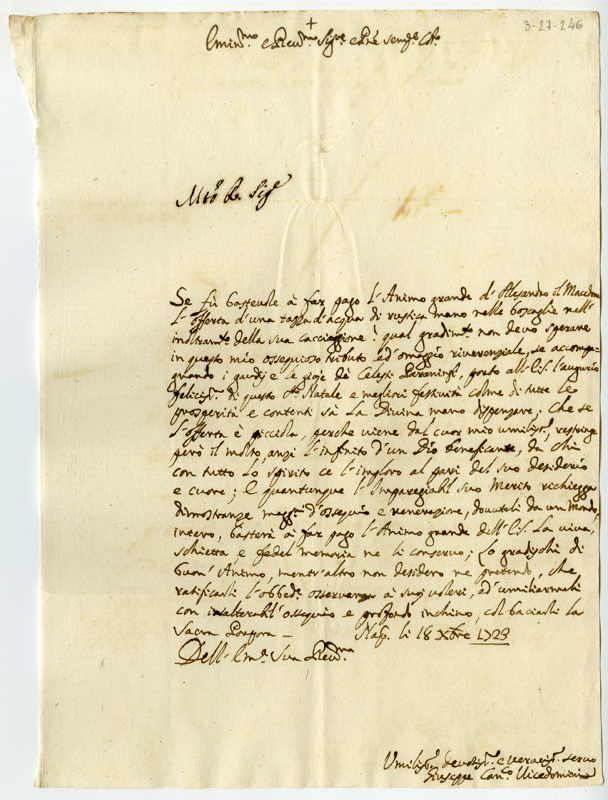 3-27-246
+
Emin.mo e Rev.mo Sig.re e Pne semp.e
Mto R. Sig.e
Se fù basteuole à far pago l'Animo grande d'Alesandro il Macedone
l'offerta d'una tazza d'acqua di rustica mano nelle boscaglie nell'
della sua cacciaggione! qual gradim.to non deuo sperare
in questo mio ossequioso tributo ed'omaggio riuerenziale, se accompa-
gnando i gaudij e le gioie dè Celesti Paraninfi, porto all' l'augurio
felicis.o di questo S.to Natale e megliori festiuità colme di tutte le
prosperità e contenti sà la Diuina mano dispensare; Che se
l'offerta è picciola, perche uiene dal cuor mio umiliss.o, restringe
però il molto, anzi l'infinito d'un Dio beneficante, da chi
con tutto lo spirito ce l'imploro al pari del suo desiderio
e cuore; E quantunque l'Impareggiabl suo Merito richiegga
dimostranze magg.ri d'ossequio e venerazione, douuteli da un Mondo
intero, basterà à far pago l'Animo grande dell' la uiua,
schietta e fedel memoria ne li conseruo; Lo gradischi di
buon' Animo, mentr'altro non desidero ne pretendo, che
ratificarli l'obbed.e osseruanza ài suoi uoleri, ed'umiliarmeli
con inalterabl'ossequio e profondo inchino, col baciarli la
Sacra Porpora - Nap. li 18 Xbre 1723
Dell' Em.a Sua Reu.ma
Umiliss.o deuotiss.o e ueraciss.o seruo
Giuseppe Can.co Vicedomini